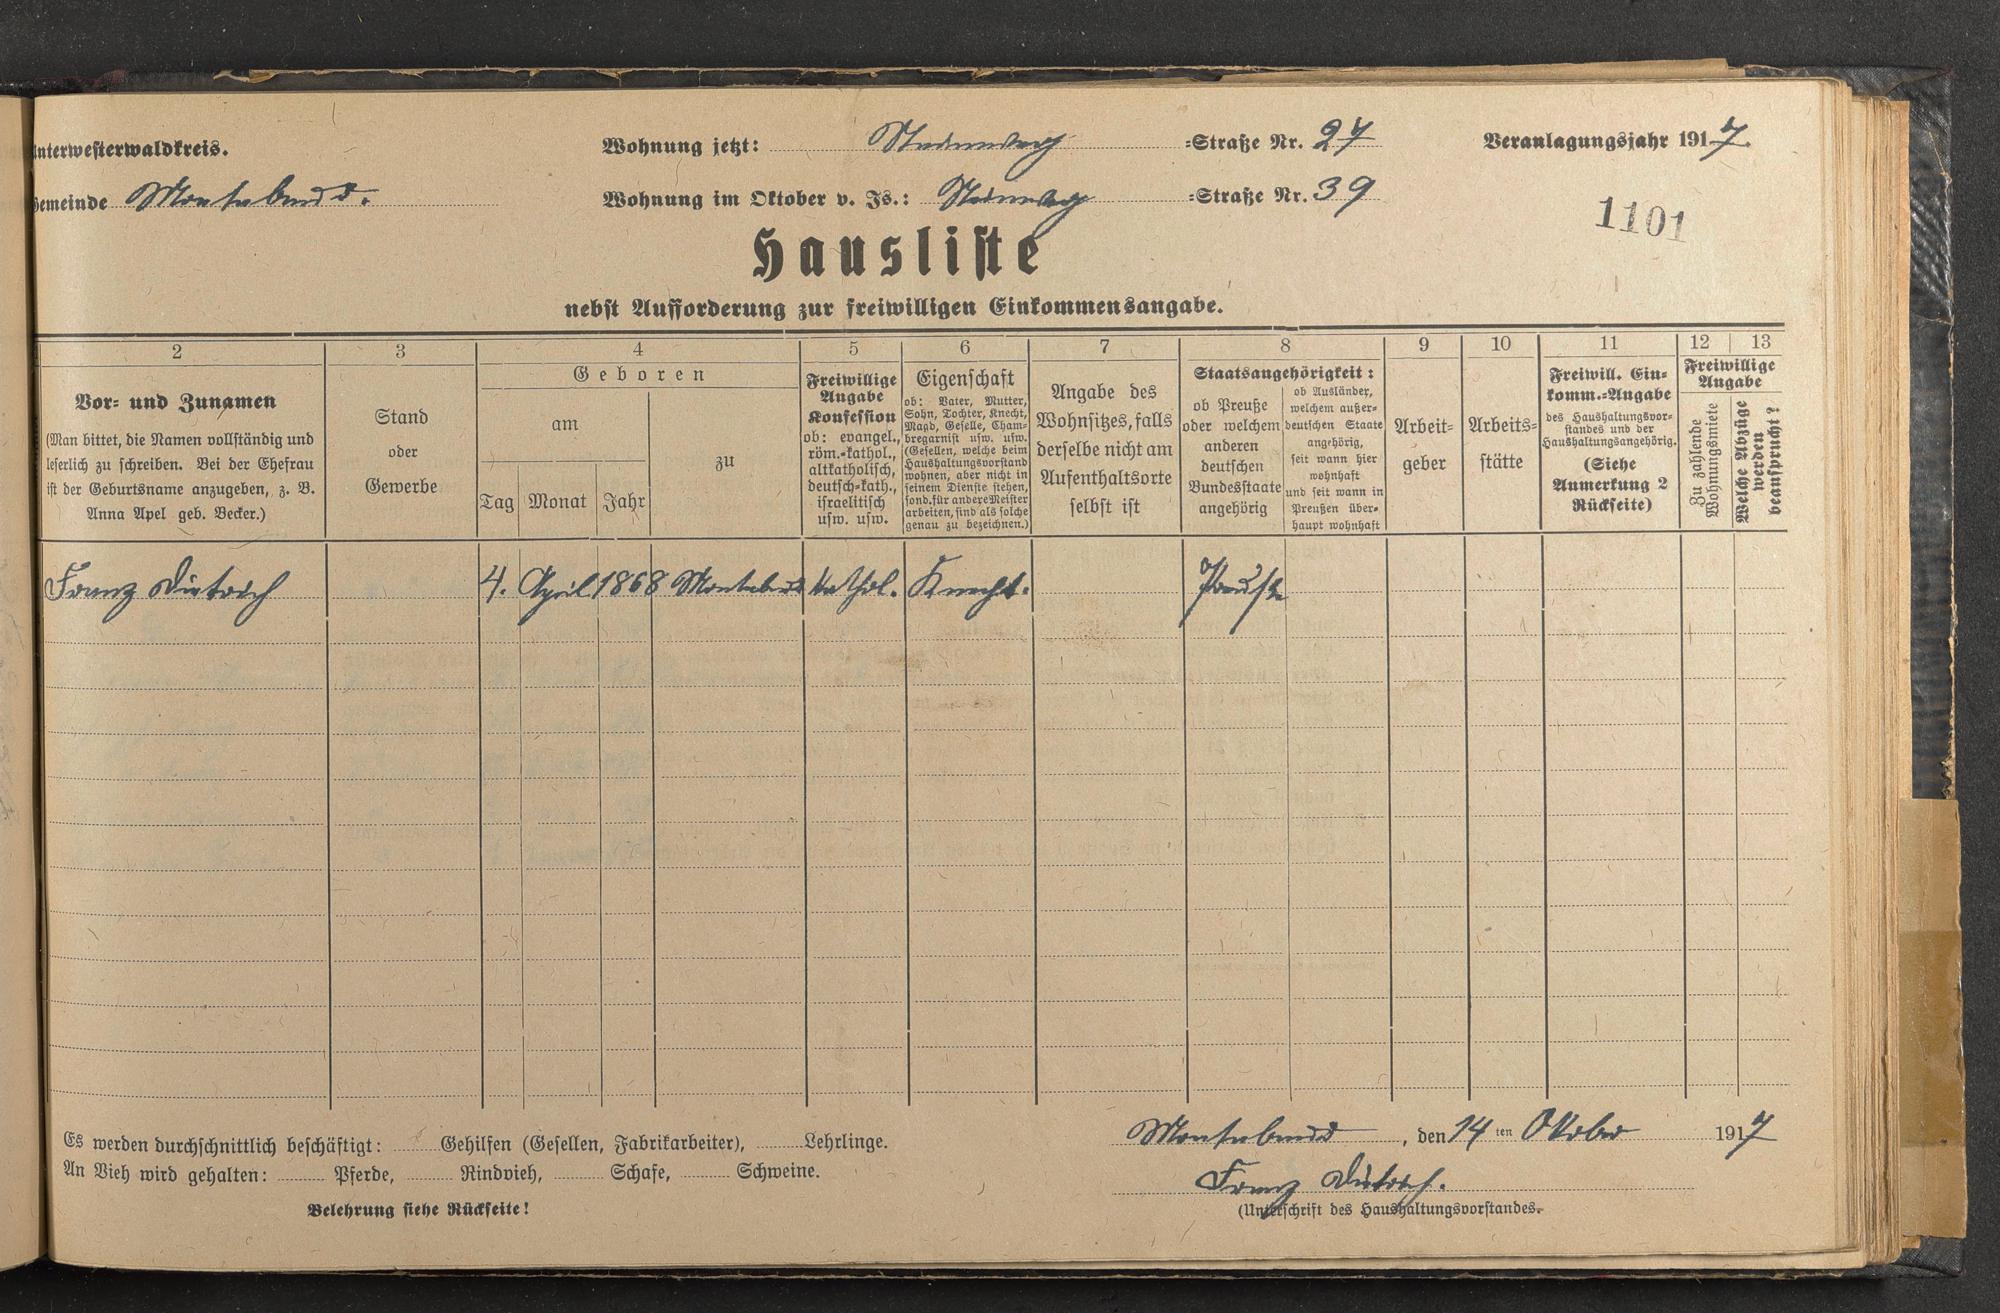 Unterwesterwaldkreis.
Wohnung jetzt: -Straße Nr. 27
Veranlagungsjahr 1917
Gemeinde Montabaur.
Wohnung im Oktober v. Js.: -Straße Nr. 39
1101
Hausliste
nebst Aufforderung zur freiwilligen Einkommensangabe.
2 3 4 5 6 7 8 9 10 11 12 13
Vor- und Zunamen
(Man bittet, die Namen vollständig und
leserlich zu schreiben. Bei der Ehefrau
ist der Geburtsname anzugeben, z. B.
Anna Apel geb. Becker.)
Stand
oder
Gewerbe
Geboren
am
zu
Tag Monat Jahr
Freiwillige
Angabe
Konfession
ob: evangel.,
röm.-kathol.,
altkatholisch,
deutsch-kath.,
israelitisch
usw. usw.
Eigenschaft
ob: Vater, Mutter,
Sohn, Tochter, Knecht,
Magd, Geselle, Cham-
bregarnist usw. usw.
(Gesellen, welche beim
Haushaltungsvorstand
wohnen, aber nicht in
seinem Dienste stehen,
sond. für andere Meister
arbeiten, sind als solche
genau zu bezeichnen.)
Angabe des
Wohnsitzes, falls
derselbe nicht am
Aufenthaltsorte
selbst ist
Staatsangehörigkeit:
ob Preuße
oder welchem
anderen
deutschen
Bundesstaate
angehörig
ob Ausländer,
welchem außer-
deutschen Staate
angehörig,
seit wann hier
wohnhaft
und seit wann in
Preußen über-
haupt wohnhaft
Arbeit-
geber
Arbeits-
stätte
Freiwill. Ein-
komm.-Angabe
des Haushaltungsvor-
standes und der
Haushaltungsangehörig.
(Siehe
Anmerkung 2
Rückseite)
Freiwillige
Angabe
Zu zahlende
Wohnungsmiete
Welche Abzüge
werden
beansprucht?
Franz Dietrich 4. April 1868 Montabaur kathol. Knecht. Preuße
Es werden durchschnittlich beschäftigt: Gehilfen (Gesellen, Fabrikarbeiter), Lehrlinge.
An Vieh wird gehalten: Pferde, Rindvieh, Schafe, Schweine.
Belehrung siehe Rückseite!
Montabaur, den 14ten Oktober 1917
Franz Dietrich.
(Unterschrift des Haushaltungsvorstandes.